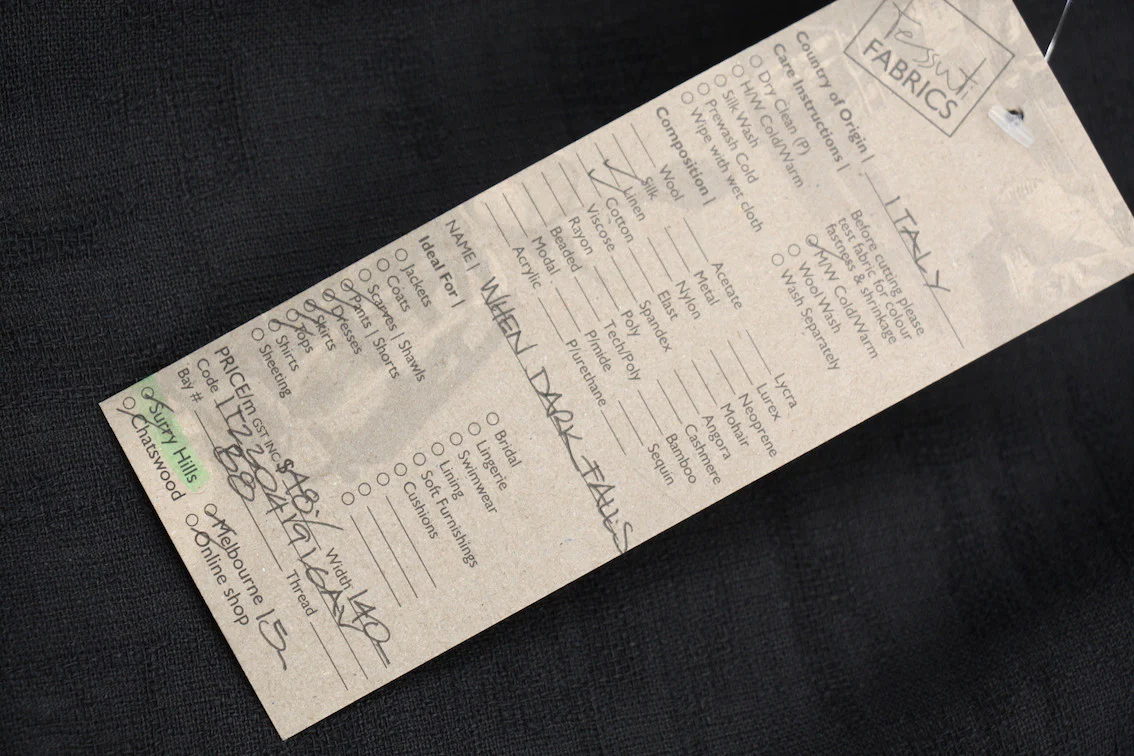 Tessuti
FABRICS
Country of Origin | ITALY
Care Instructions |
Dry Clean (P)
H/W Cold/Warm
Silk Wash
Prewash Cold
Wipe with wet cloth
Before cutting please
test fabric for colour
fastness & shrinkage
M/W Cold/Warm
Wool Wash
Wash Separately
Composition |
Wool
Silk
Linen
Cotton
Viscose
Rayon
Beaded
Modal
Acrylic
Acetate
Metal
Nylon
Elast
Spandex
Poly
Tech/Poly
P/mide
P/urethane
Lycra
Lurex
Neoprene
Mohair
Angora
Cashmere
Bamboo
Sequin
NAME | WHEN DARK FALLS
Ideal For |
Jackets
Coats
Scarves | Shawls
Pants | Shorts
Dresses
Skirts
Tops
Shirts
Sheeting
Bridal
Lingerie
Swimwear
Lining
Soft Furnishings
Cushions
PRICE/m GST INC $48.- Width 140
Code
Bay # 88 Thread
Surry Hills
Chatswood
Melbourne 15
Online shop